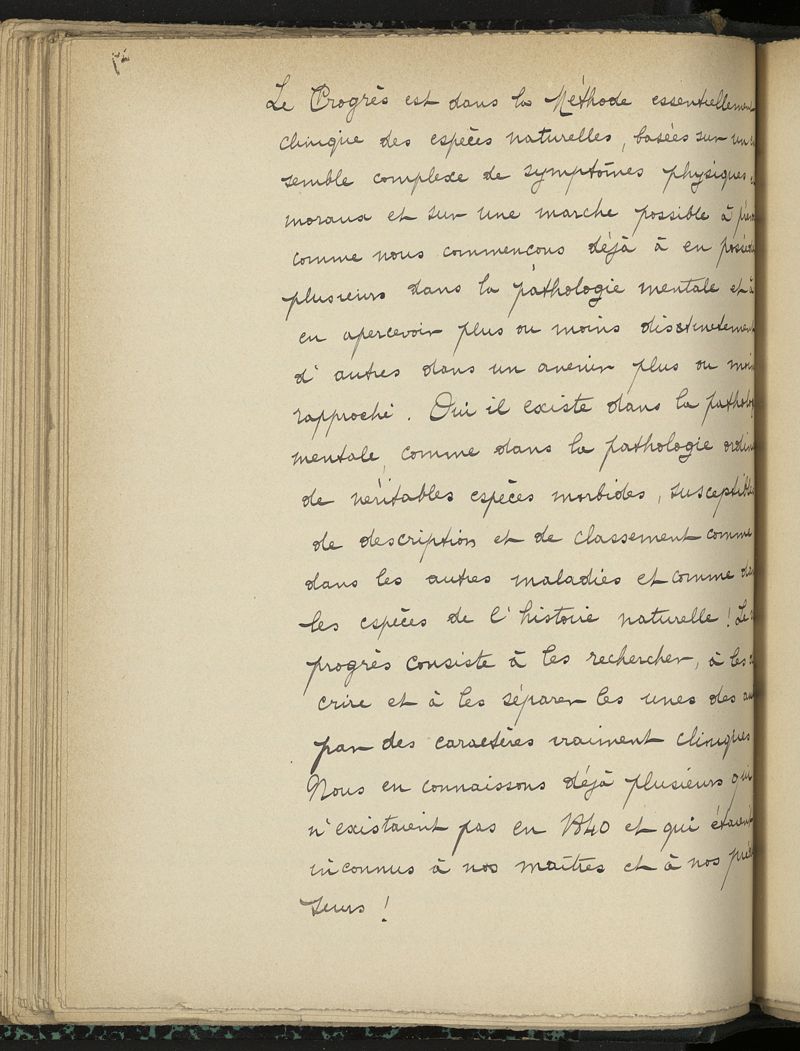 Le Progrès est dans la Méthode essentiellement
clinique des espèces naturelles, basées sur un
semble complexe de symptômes physiques
moraux et sur une marche possible à
comme nous commençons déjà à en
plusieurs dans la pathologie mentale et à
en apercevoir plus ou moins distinctement
d'autres dans un avenir plus ou moin
rapproché. Oui il existe dans la patholo
mentale, comme dans la pathologie ordin
de véritables espèces morbides, susceptibles
de description et de classement comme
dans les autres maladies et comme
les espèces de l'histoire naturelle! Le
progrès consiste à les rechercher, à les
crire et à les séparer les unes des au
par des caractères vraiment cliniques
Nous en connaissons déjà plusieurs qui
n'existaient pas en 1840 et qui étaient
inconnus à nos maîtres et à nos
seurs!